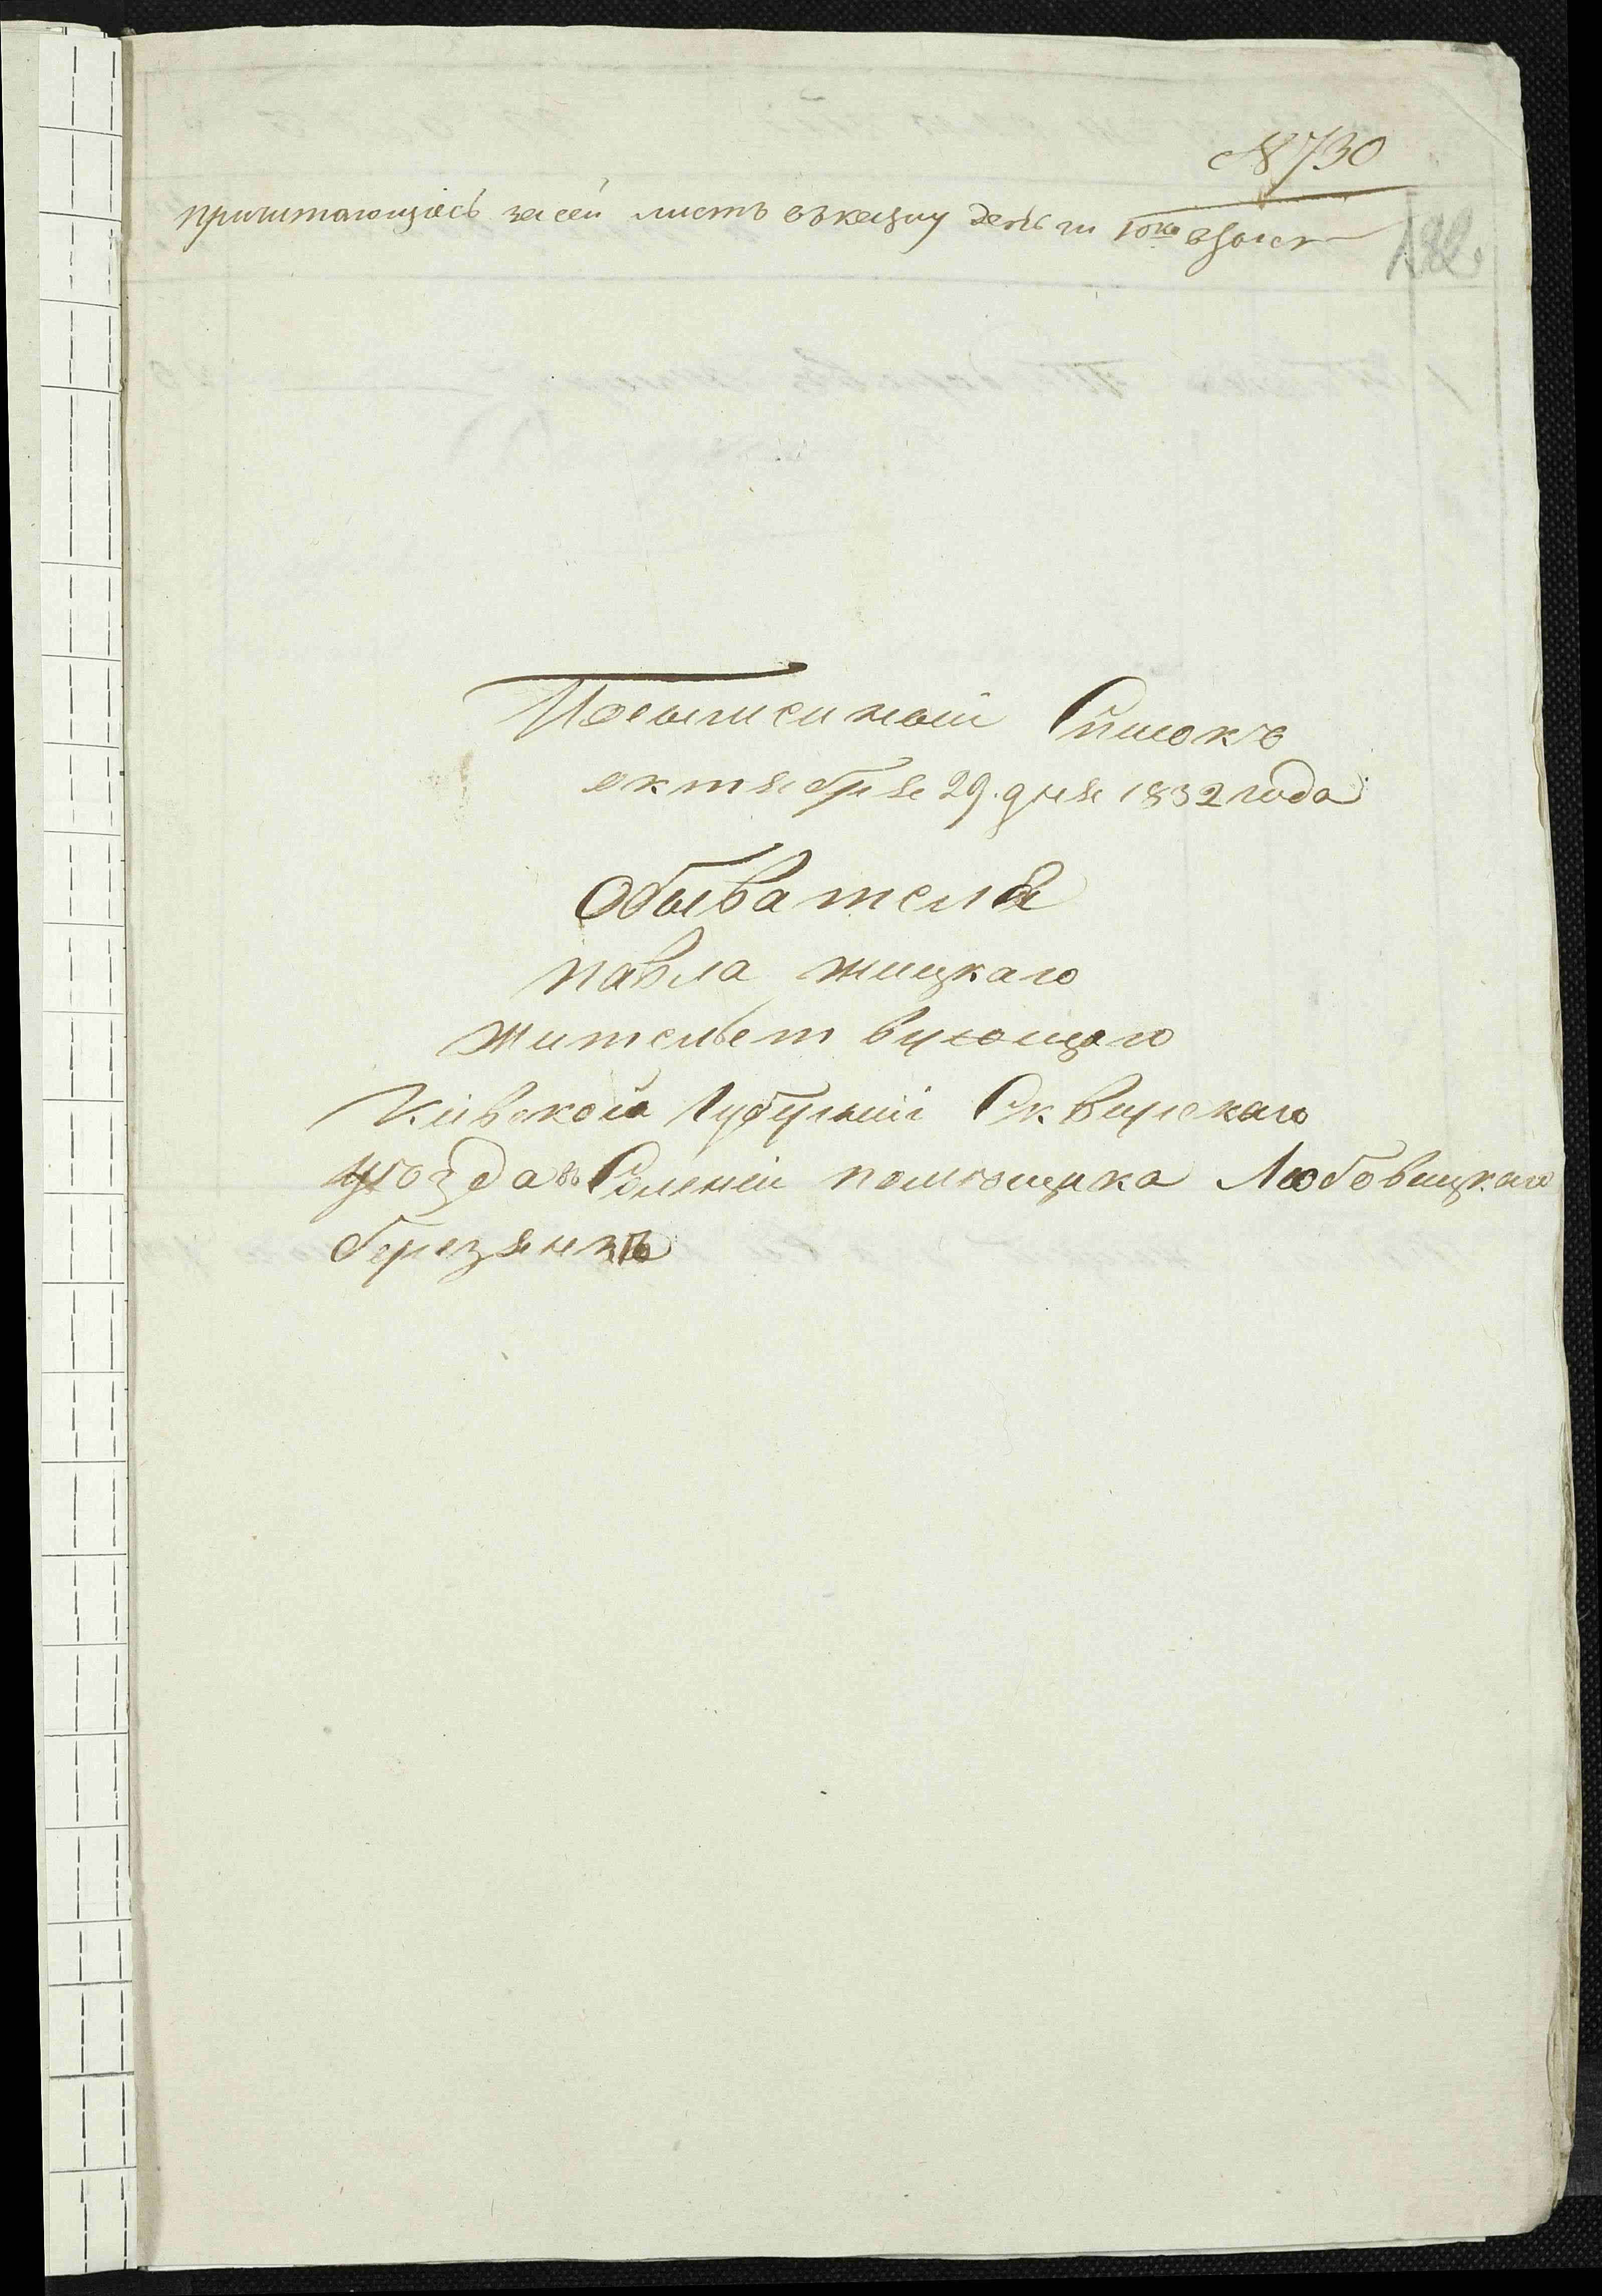 № 730
причитающіесь за сей листъ въ казну деньги 10 ко взяст
182.
Посемейный Списокъ
октября 29. дня 1832 года
Обывателя
павла жицкаго
жительствующаго
Кіевской Губерніи Сквирскаго
уѣзда въ Селеніи помѣщика Любовицкаго
березянкѣ